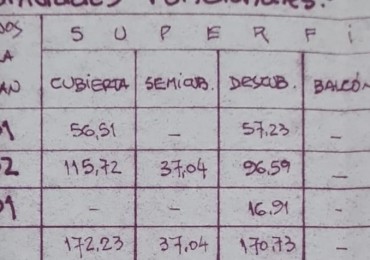 S U P E R F i
LA
CUBIERTA SEMICUB. DESCUB. BALCÓN
01 56,51 – 57,23 –
02 115,72 37,04 96,59 –
01 – – 16,91 –
172,23 37,04 170,73 –